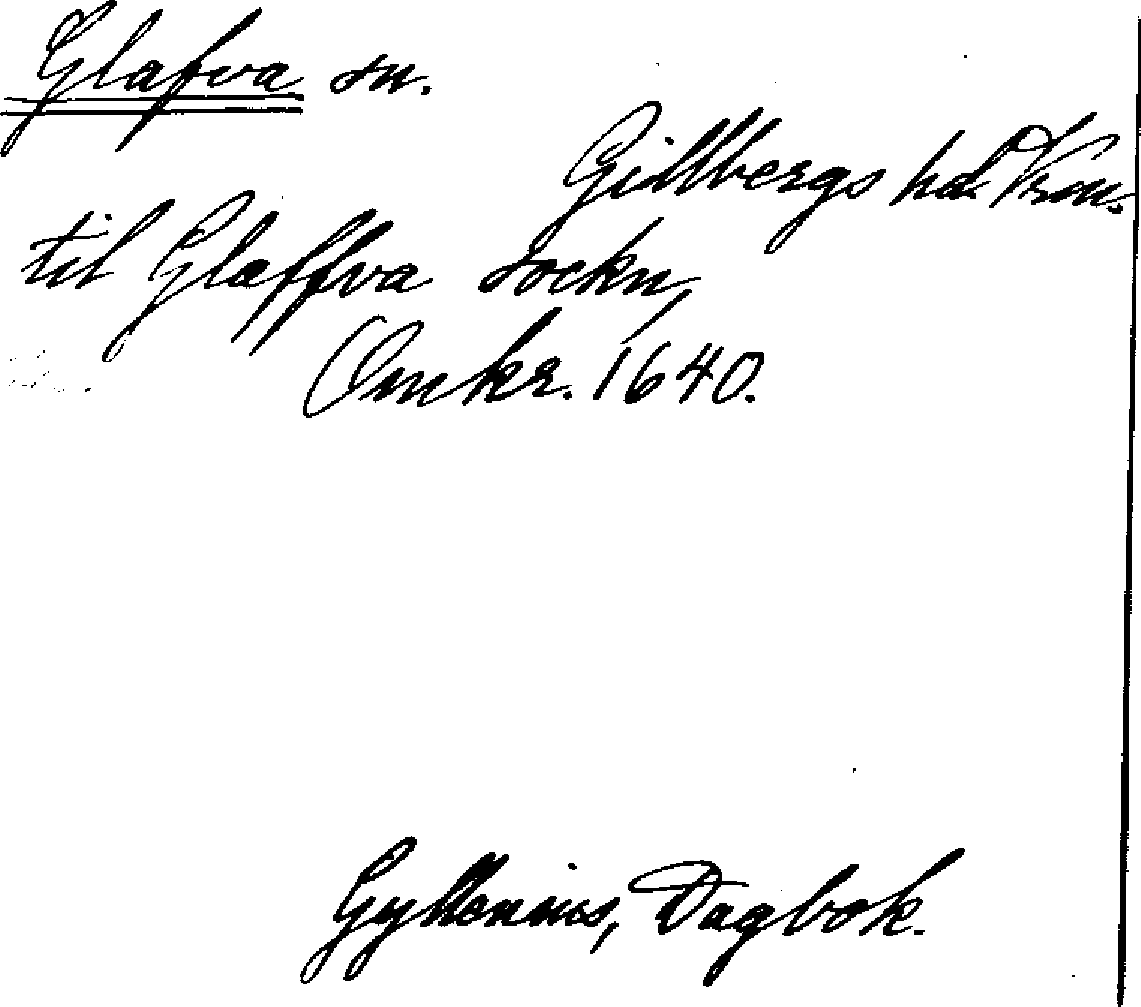 Glafva sn.
Gillbergs hd. Vrm.
til Glaffva sockn,
Omkr. 1640.
Gyllenius, Dagbok.